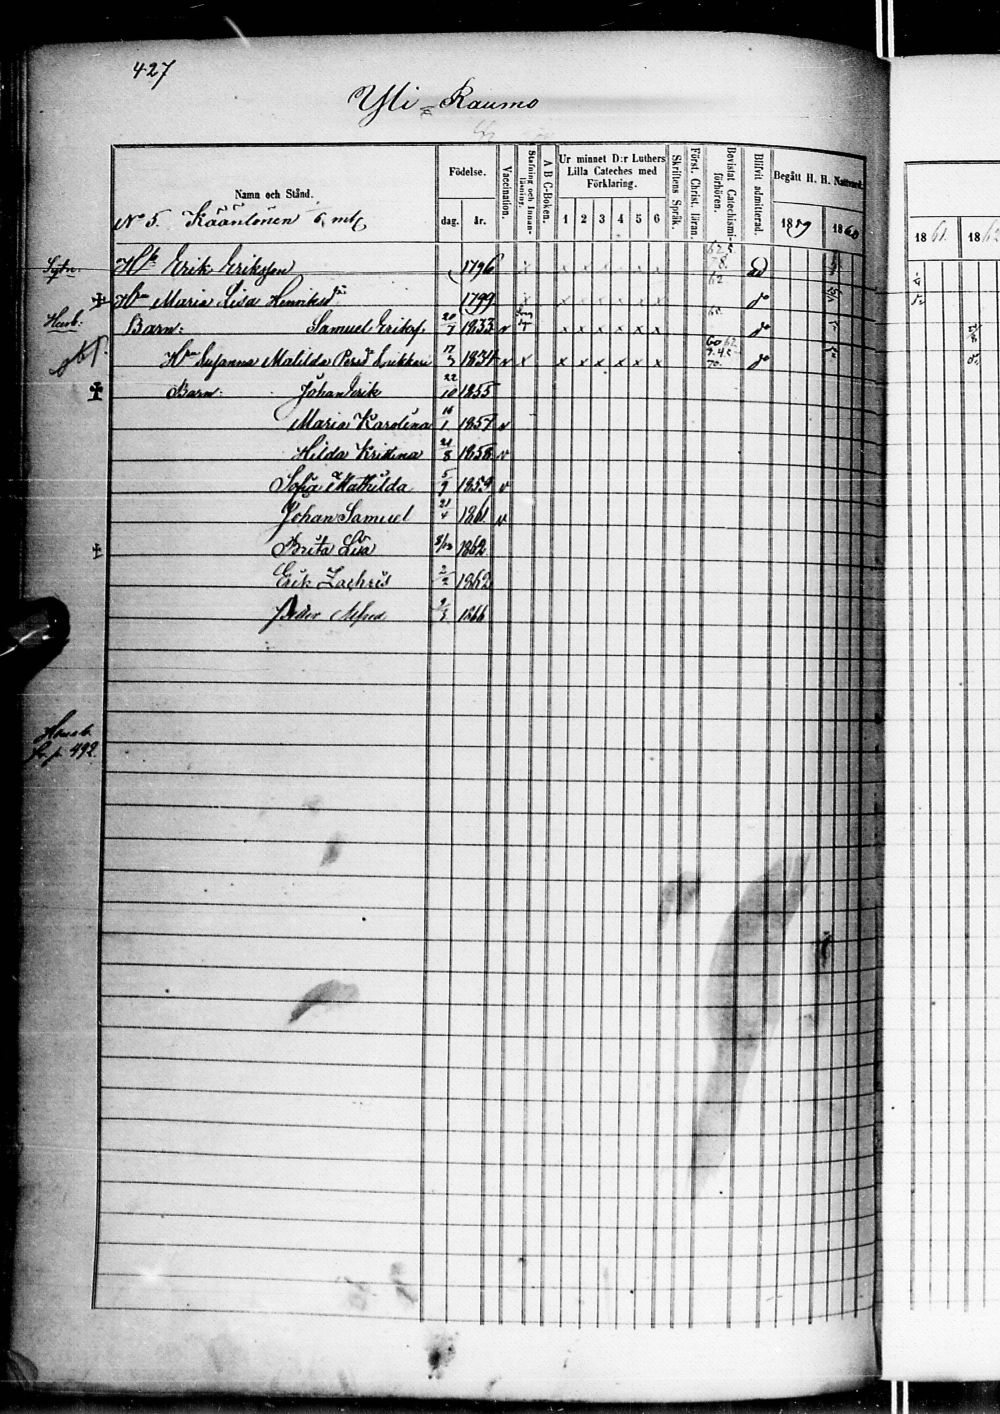 427
Yli-Raumo
Namn och Stånd.
Födelse.
dag. år.
Vaccination.
Stafning och Innanläsning.
A B C-Boken.
Ur minnet D:r Luthers Lilla Cateches med Förklaring.
1 2 3 4 5 6
Skriftens Språk.
Först. Christ. läran.
Bevistat Catechismiförhören.
Blifvit admitterad.
Begått H. H. Nattvard.
1859 1860
1861 1862
No 5. Kääntönen
Erik Eriksson 1796
Maria Lisa Henriksd:r 1799
Barn: Samuel Eriksf. 20/7 1833 v x x x x x x
Susanna Matilda 17/3 1834 v x x x x x x x
Barn: Johan Erik 22/10 1855
Maria Karolina 16/1 1857 v
Hilda Kristina 21/8 1858 v
Sofia Mathilda 5/9 1859 v
Johan Samuel 21/4 1861 v
Brita Lisa 1862
Erik Zachris 1862
Alfred 1866
p. 492.